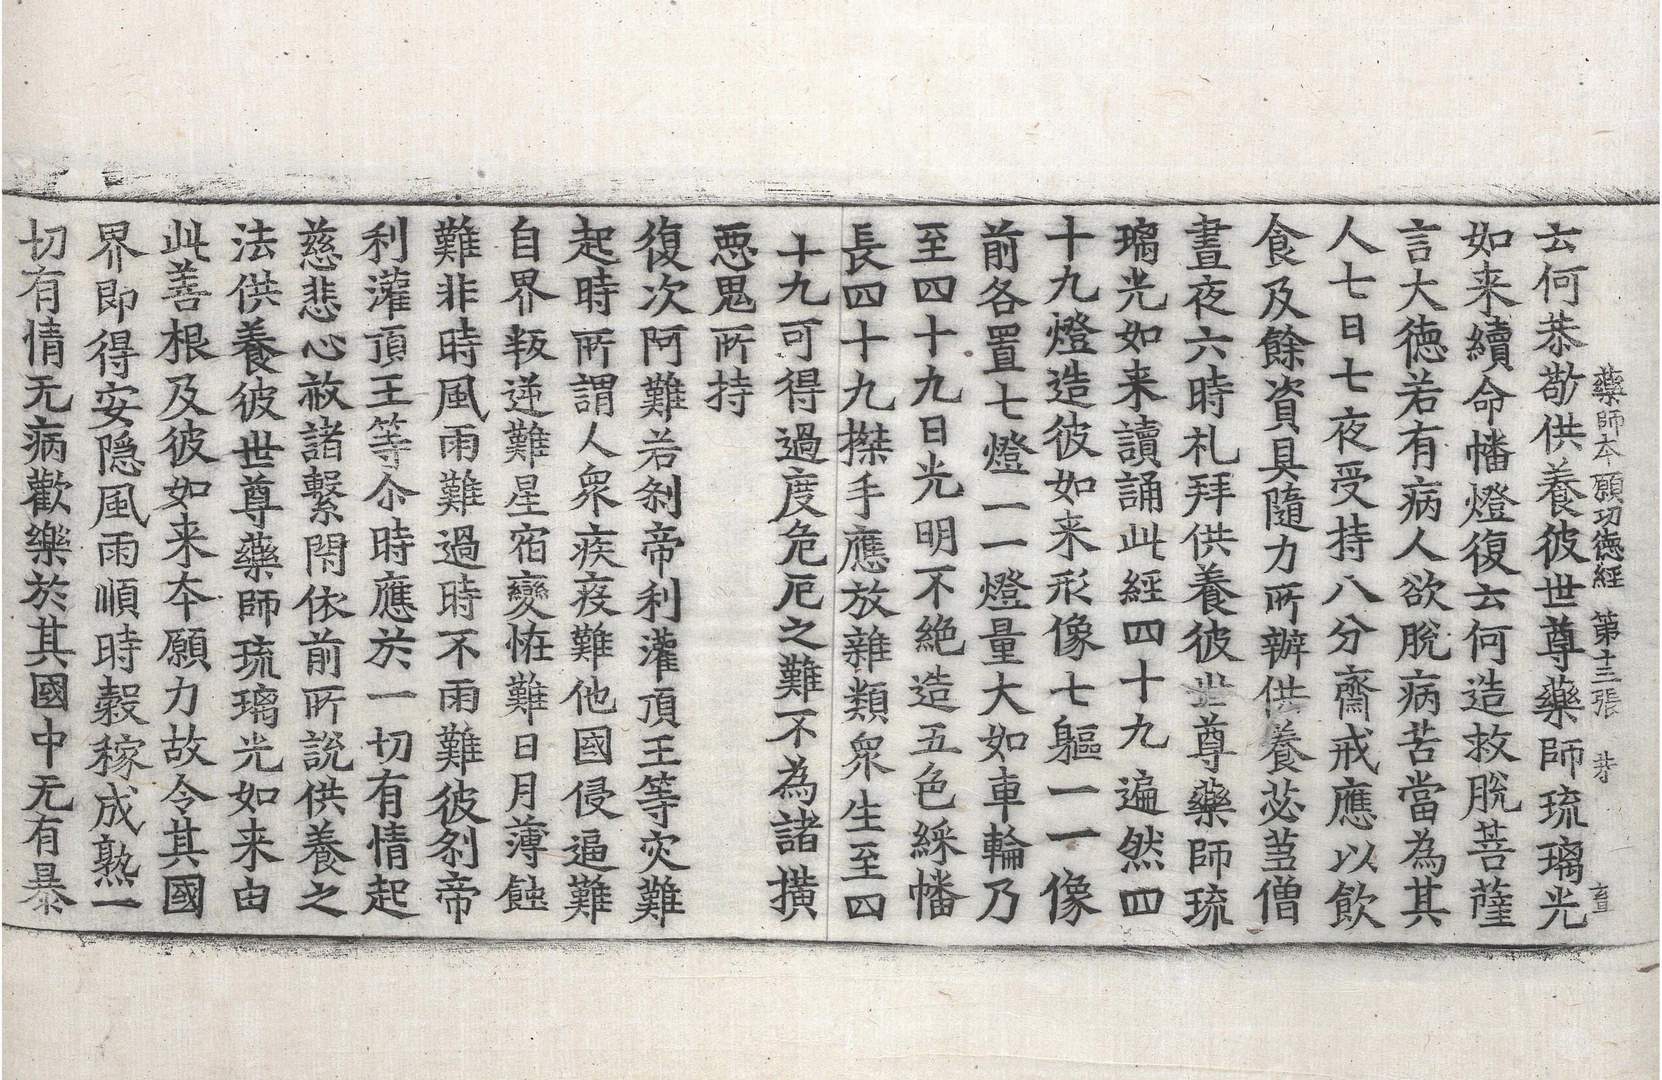 藥師本願功德經 第十三張 恭
云何恭敬供養彼世尊藥師琉璃光
如来續命幡燈復云何造救脫菩薩
言大德若有病人欲脫病苦當為其
人七日七夜受持八分齋戒應以飲
食及餘資具隨力所辦供養苾芻僧
晝夜六時礼拜供養彼世尊藥師琉
璃光如来讀誦此經四十九遍然四
十九燈造彼如来形像七軀一一像
前各置七燈一一燈量大如車輪乃
至四十九日光明不絶造五色綵幡
長四十九搩手應放雜類衆生至四
十九可得過度危厄之難不為諸横
惡鬼所持
復次阿難若刹帝利灌頂王等灾難
起時所謂人衆疾疫難他國侵逼難
自界叛逆難星宿變恠難日月薄蝕
難非時風雨難過時不雨難彼刹帝
利灌頂王等尒時應於一切有情起
慈悲心赦諸繫閇依前所說供養之
法供養彼世尊藥師琉璃光如来由
此善根及彼如来本願力故令其國
界即得安隱風雨順時穀稼成熟一
切有情无病歡樂於其國中无有暴